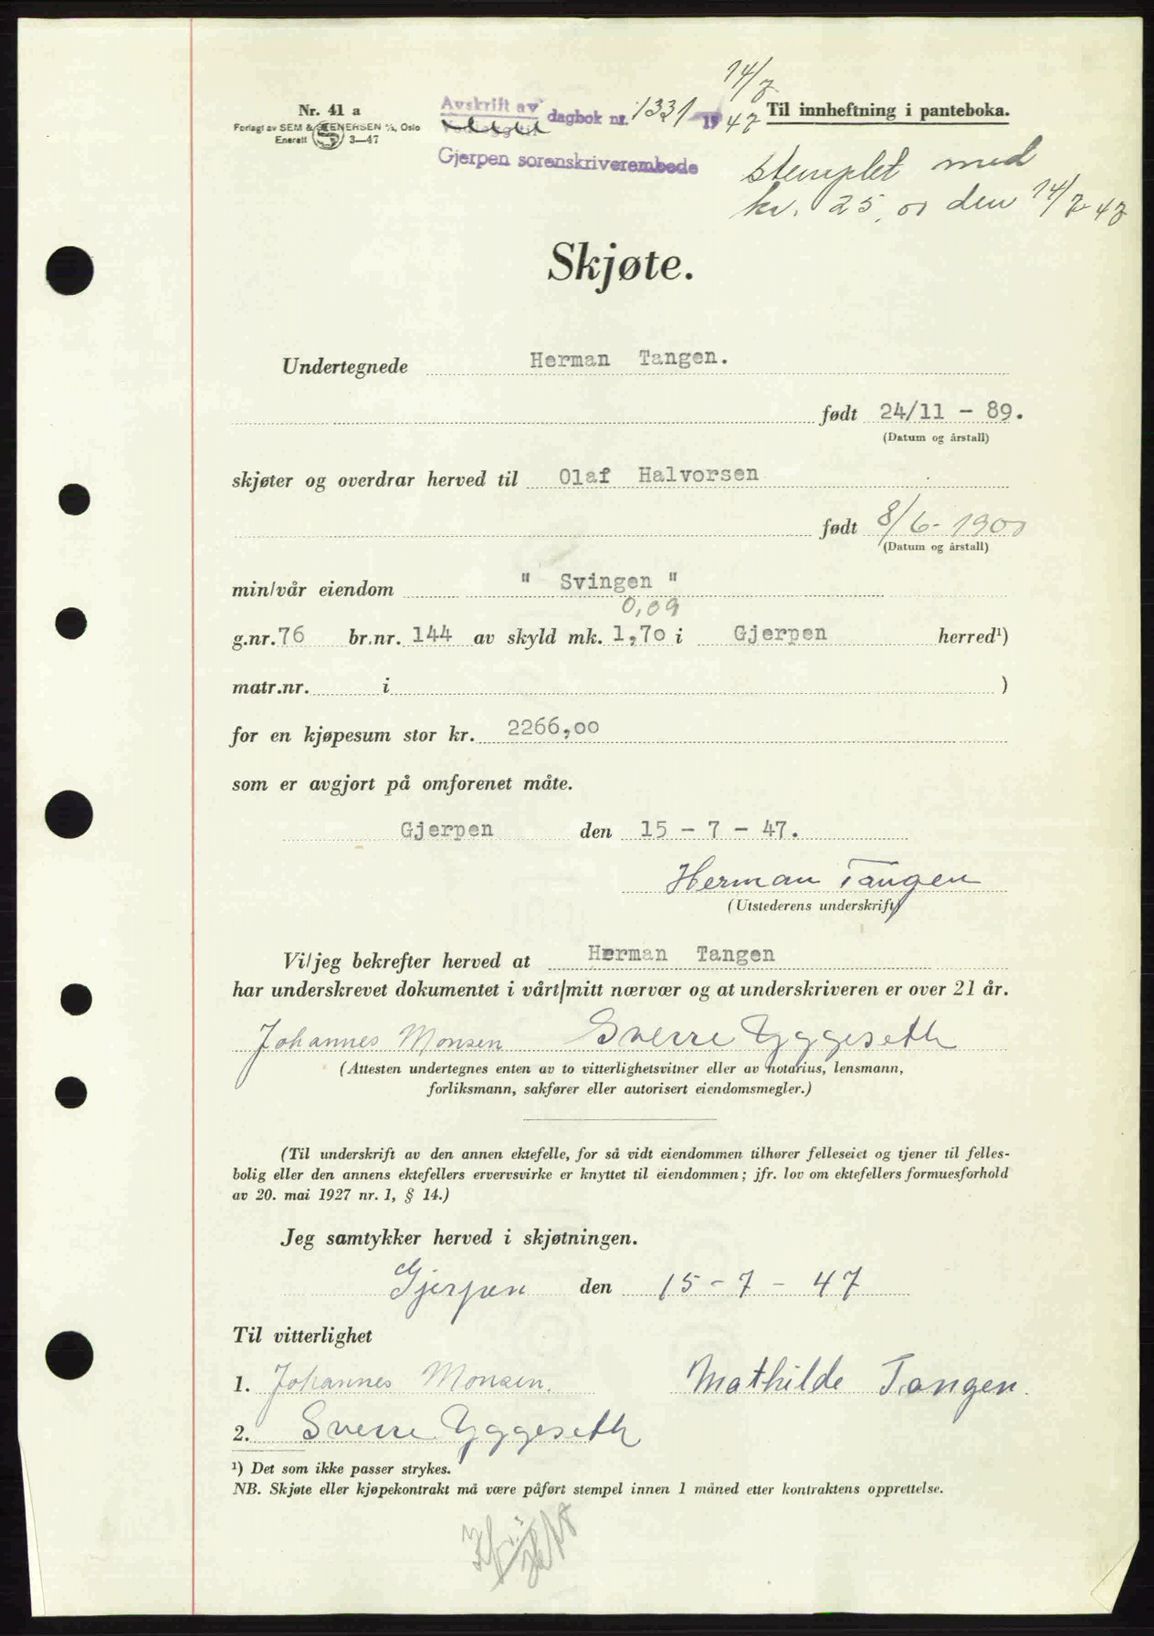 Nr. 41 a
Forlagt av SEM & STENERSEN A/S, Oslo
Enerett 3—47
Avskrift av
dagbok nr. 1331 1947 14/7
Gjerpen sorenskriverembede
Til innheftning i panteboka.
stemplet med
kr. 25,00 den 14/7-47
Skjøte.
Undertegnede Herman Tangen.
født 24/11 - 89.
(Datum og årstall)
skjøter og overdrar herved til Olaf Halvorsen
født 8/6-1900
(Datum og årstall)
min/vår eiendom " Svingen "
0,09
g.nr. 76 br.nr. 144 av skyld mk. 1,70 i Gjerpen herred¹)
matr.nr. i )
for en kjøpesum stor kr. 2266,00
som er avgjort på omforenet måte.
Gjerpen den 15 - 7 - 47.
Herman Tangen
(Utstederens underskrift)
Vi/jeg bekrefter herved at Herman Tangen
har underskrevet dokumentet i vårt/mitt nærvær og at underskriveren er over 21 år.
Johannes Monsen Sverre Yggeseth
(Attesten undertegnes enten av to vitterlighetsvitner eller av notarius, lensmann,
forliksmann, sakfører eller autorisert eiendomsmegler.)
(Til underskrift av den annen ektefelle, for så vidt eiendommen tilhører felleseiet og tjener til felles-
bolig eller den annens ektefellers ervervsvirke er knyttet til eiendommen; jfr. lov om ektefellers formuesforhold
av 20. mai 1927 nr. 1, § 14.)
Jeg samtykker herved i skjøtningen.
Gjerpen den 15-7-47
Til vitterlighet
1. Johannes Monsen. Mathilde Tangen.
2. Sverre Yggeseth
¹) Det som ikke passer strykes.
NB. Skjøte eller kjøpekontrakt må være påført stempel innen 1 måned etter kontraktens opprettelse.